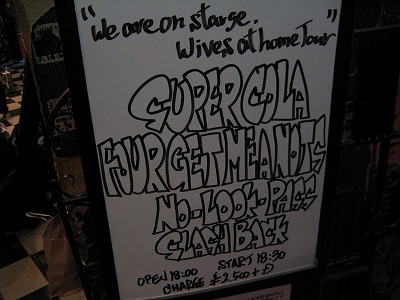 "We are on starge.
Wives at home Tour"
SUPER COLA
FOUR GET ME A NOTS
NO-LOOK-PASS
SLASH BACK
OPEN 18:00 START 18:30
CHARGE ¥2,500+D